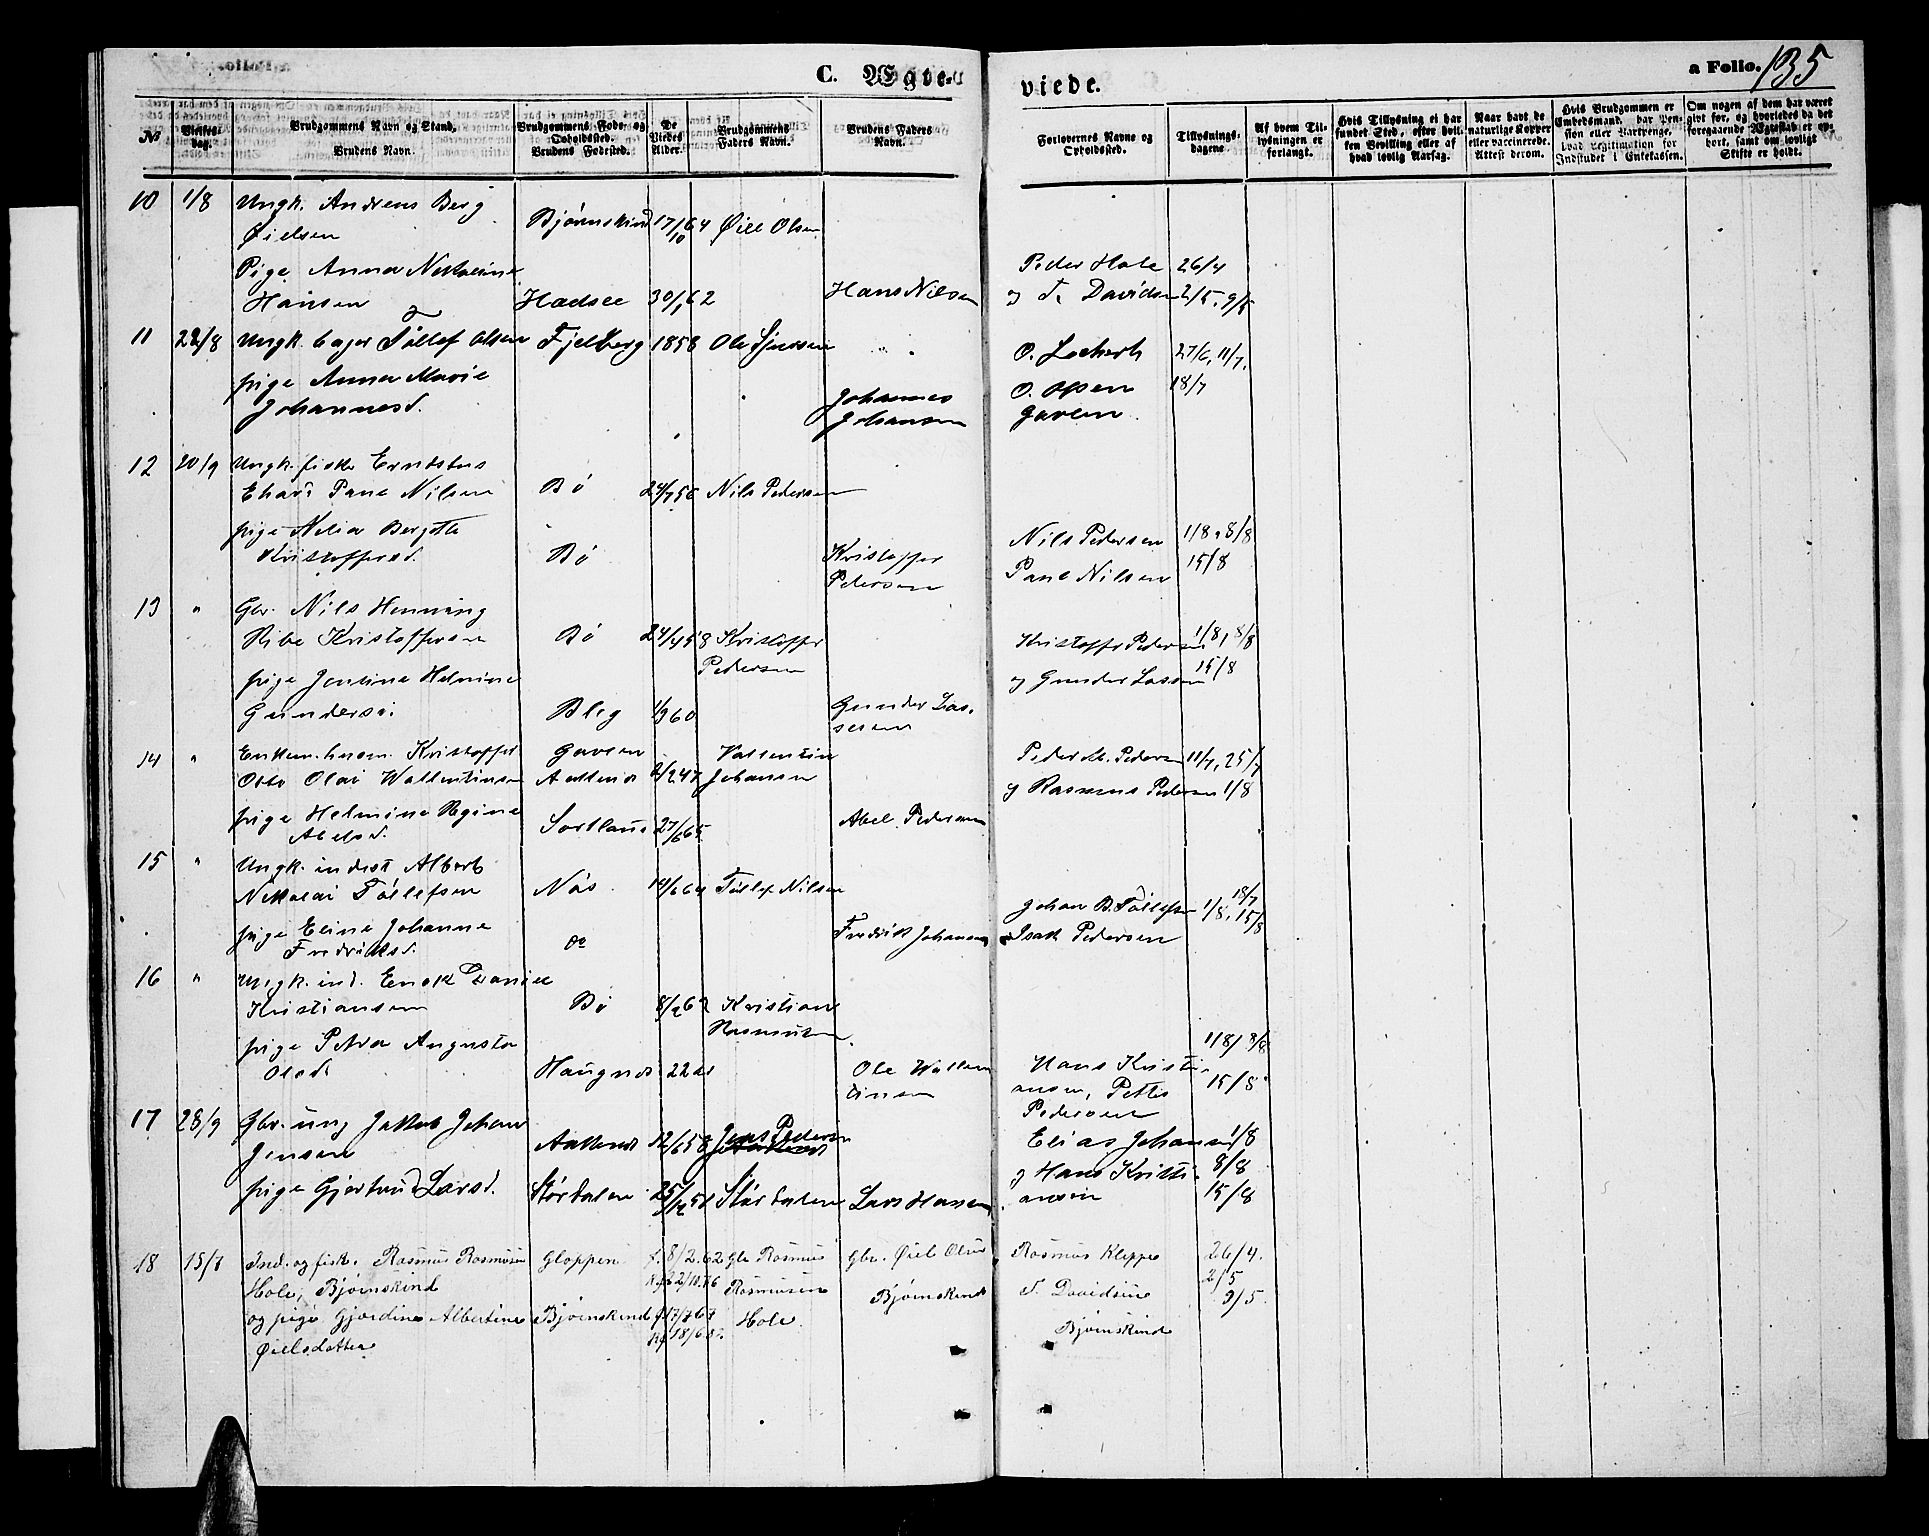 C. Ægte-
viede.
a Folio. 135
№
Vielses-
dag.
Brudgommens Navn og Stand,
Brudens Navn.
Brudgommens Føde- og
Opholdssted.
Brudens Fødested.
De
Viedes
Alder.
Brudgommens
Faders Navn.
Brudens Faders
Navn.
Forlovernes Navne og
Opholdssted.
Tillysnings-
dagene
Af hvem Til-
lysningen er
forlangt.
Hvis Tillysning ei har
fundet Sted, efter hvil-
ken Bevilling eller af
hvad lovlig Aarsag.
Naar havt de
naturlige Kopper
eller vaccinerede.
Attest derom.
Hvis Brudgommen er
Embedsmand, har Pen-
sion eller Vartpenge,
hvad Legitimation for
Indskudet i Enkekassen.
Om nogen af dem har været
givt før, og hvorledes da det
foregaaende Ægteskab er op-
hørt, samt om lovligt
Skifte er holdt.
10 1/8 Ungk. Andreas Berg
Øielsen Bjørnskind 17/10 64 Øiel Olsen
Pige Anna Nekoline Peder Hole 26/4
Hansen Hadsel 30/1 62 Hans Nilsen og T. Davidsen 2/5, 9/5
11 22/8 Ungk. bager Tollef Olsen Fjelberg 1858 Ole O. Lockert 27/6, 11/7,
pige Anna Marie O. Olsen 18/7
Johannesd. Johannes
Johansen Gavlen
12 20/9 Ungk. fisk.
Nilsen Bø 24/7 56 Nils Pedersen
pige Nelia Bergitte Nils Pedersen 1/8, 8/8
Kristoffersd. Bø Kristoffer Paul Nilsen 15/8
Pedersen
13 " Gbr. Nils Henning
Ribe Kristoffersen Bø 24/4 58 Kristoffer Kristoffer Pedersen 1/8, 8/8
Pedersen
pige Jensine Helmine og Gunder Lassen 15/8
Gundersd. Bleg 1/9 60 Gunder Las-
sesen
14 " Enkem. Kristoffer Gavlen Vallentin Peder M. Pedersen 11/7, 25/7
Otto Olai Wallentinsen 2/2 47 Johansen og Rasmus Pedersen 1/8
pige Helmine Regine Sortland 27/6 65 Abel Pedersen
Abelsd.
15 " Ungk. inderst Albert
Nekolai Tollefsen Nøs 14/6 64 Tollef Nilsen 18/7
Johan B. Tollefsen 1/8, 15/8
pige Eline Johanne do Fredrik Johansen Isak Pedersen
Fredriksd.
16 " Ungk. ind. Enok Daniel
Kristiansen Bø 8/2 62 Kristian
Rasmussen
pige Petra Augusta 1/8, 8/8
Olsd. Haugnes 22 Ole Wallen Hans Kristi-
tinsen ansen, Petter 15/8
Pedersen
17 28/9 Gbr. ung Jakob Johan Jens Pedersen Elias Johansen 1/8
Jensen 12/6 58
pige Gjertrud Larsd. Størdalen 25/12 51 Størdalen Lars Hansen og Hans Kristi- 8/8
ansen 15/8
18 15/8 Ind. og fisk. Rasmus Rasmusen Gloppen f. 8/2 62 Gbr. Rasmus Gbr. Øiel Olsen Rasmus Kleppe 26/4.
Hole, Bjørnskind Rasmusen Bjørnskind T. Davidsen 2/5
og pige Gjærdine Albertine Bjørnskind 17/7 67 Hole. 9/5.
Øielsdatter Bjørnskind